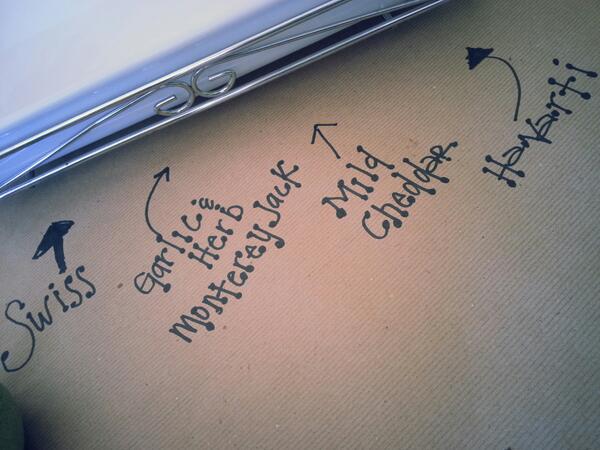 Swiss
Garlic &
Herb
Monterey Jack
Mild
Cheddar
Havarti